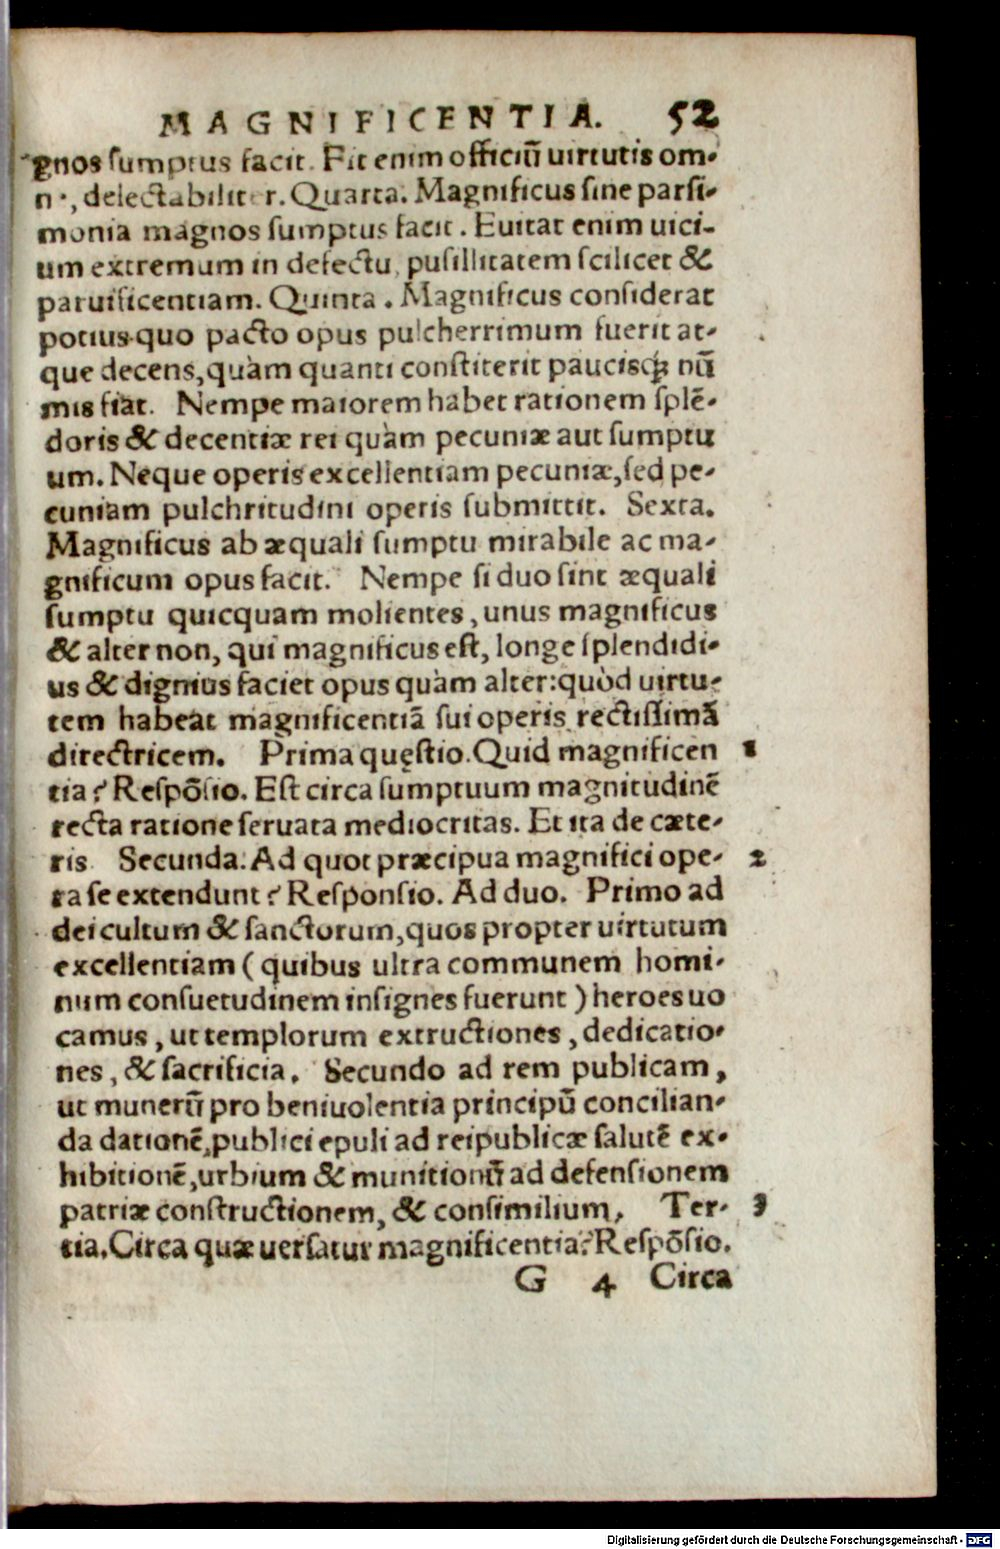 MAGNIFICENTIA. 52
gnos ſumptus facit. Fit enim officiū uirtutis om-
n , delectabiliter. Quarta. Magnificus ſine parſi-
monia magnos ſumptus facit. Euitat enim uici-
um extremum in defectu, puſillitatem ſcilicet &
paruificentiam. Quinta. Magnificus conſiderat
potius quo pacto opus pulcherrimum fuerit at-
que decens, quàm quanti conſtiterit pauciscꝫ nū
mis fiat. Nempe maiorem habet rationem ſplē-
doris & decentiæ rei quàm pecuniæ aut ſumptu
um. Neque operis excellentiam pecuniæ, ſed pe-
cuniam pulchritudini operis ſubmittit. Sexta.
Magnificus ab æquali ſumptu mirabile ac ma-
gnificum opus facit. Nempe ſi duo ſint æquali
ſumptu quicquam molientes, unus magnificus
& alter non, qui magnificus eſt, longe ſplendidi-
us & dignius faciet opus quàm alter: quòd uirtu-
tem habeat magnificentiā ſui operis rectiſſimā
directricem. Prima quęſtio. Quid magnificen 1
tia? Reſpōſio. Eſt circa ſumptuum magnitudinē
recta ratione ſeruata mediocritas. Et ita de cæte-
ris Secunda. Ad quot præcipua magnifici ope- 2
ra ſe extendunt? Reſponſio. Ad duo. Primo ad
dei cultum & ſanctorum, quos propter uirtutum
excellentiam (quibus ultra communem homi-
num conſuetudinem inſignes fuerunt) heroes uo
camus, ut templorum extructiones, dedicatio-
nes, & ſacrificia. Secundo ad rem publicam,
ut munerū pro beniuolentia principū concilian-
da dationē, publici epuli ad reipublicæ ſalutē ex-
hibitionē, urbium & munitionū ad defenſionem
patriæ conſtructionem, & conſimilium. Ter- 3
tia. Circa quæ uerſatur magnificentia? Reſpōſio.
G 4 Circa
Digitalisierung gefördert durch die Deutsche Forschungsgemeinschaft - DFG